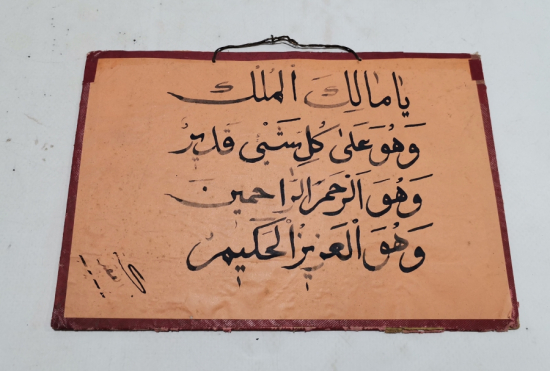 يَا مَالِكَ الْمُلْك
وَهُوَ عَلىٰ كُلِ شَيْءٍ قَدِيرٌ
وَهُوَ اَرْحَمَ الرَّاحِمِينَ
وَهُوَ الْعَزِيزُ الْحَكِيمُ